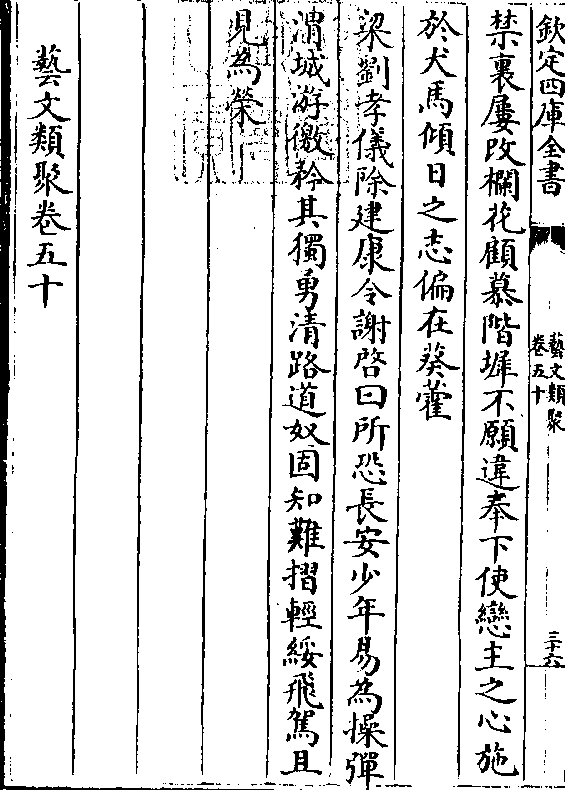 欽定四庫全書
藝文類聚
卷五十
三十六
禁裏屢改欄花顧慕階墀不願違奉下使戀主之心施
於犬馬傾日之志偏在葵藿
梁劉孝儀除建康令謝啓曰所恐長安少年易為操彈
渭城游徼矜其獨勇清路道奴固知難摺輕綏飛駕且
見為榮
藝文類聚卷五十